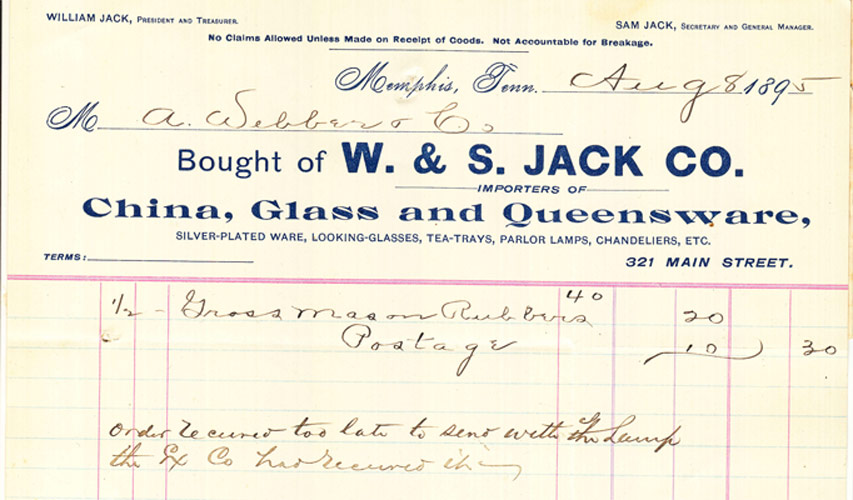 WILLIAM JACK, PRESIDENT AND TREASURER.
SAM JACK, SECRETARY AND GENERAL MANAGER.
No Claims Allowed Unless Made on Receipt of Goods. Not Accountable for Breakage.
Memphis, Tenn. Aug 8 1895
M A. Webber & Co
Bought of W. & S. JACK CO.
IMPORTERS OF
China, Glass and Queensware,
SILVER-PLATED WARE, LOOKING-GLASSES, TEA-TRAYS, PARLOR LAMPS, CHANDELIERS, ETC.
TERMS:
321 MAIN STREET.
1/2 - Gross Mason Rubbers 40 20
Postage 10 30
order recured too late to send with the Lamp
the Ex Co had recured